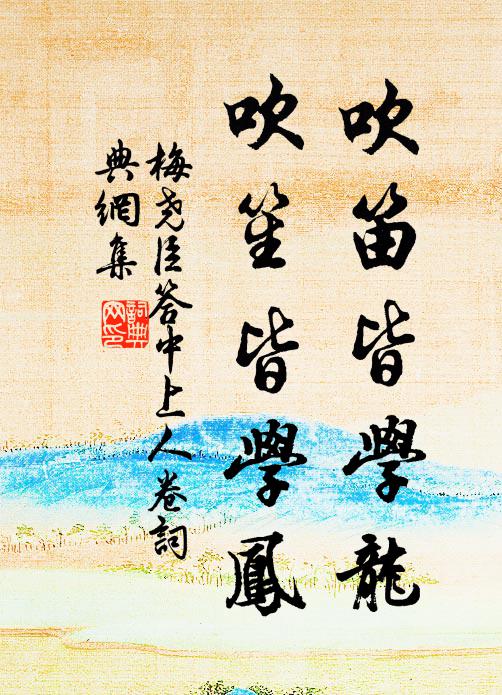 吹笛皆學龍
吹笙皆學鳳
梅堯臣答中上人卷詞
典網集
詞典
网印